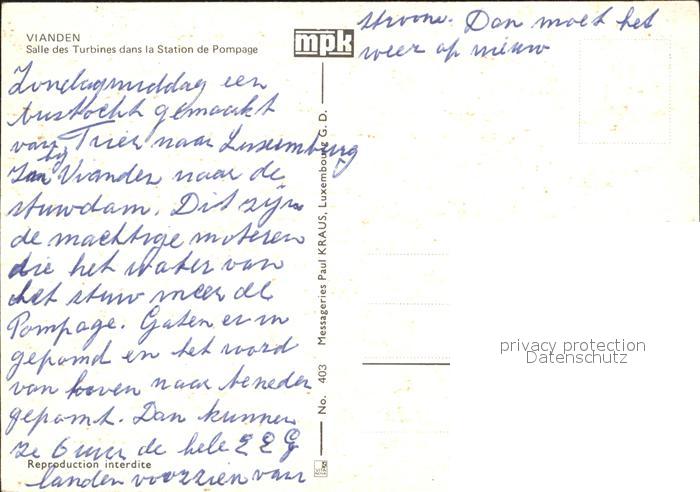 VIANDEN
Salle des Turbines dans la Station de Pompage
mpk
Zondagmiddag een
bustocht gemaakt
van Trier naar Luxemburg
bij Vianden naar de
stuwdam. Dit zijn
de machtige moteren
die het water van
het stuw meer de
Pompage. Gaten er in
gepomd en het word
van boven naar beneden
gepomt. Dan kunnen
ze 6 uur de hele E E G
landen voorzien van
stroom. Dan moet het
weer op nieuw
Reproduction interdite
No. 403 Messageries Paul KRAUS, Luxembourg G. D.
privacy protection
Datenschutz